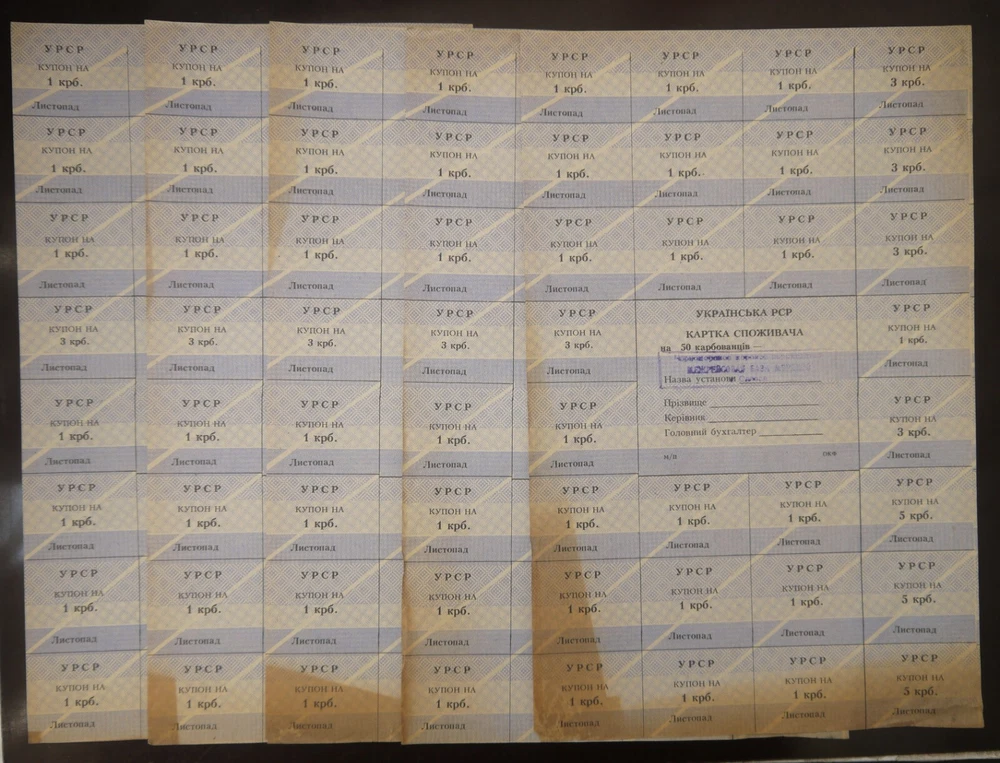 УРСР УРСР УРСР УРСР УРСР УРСР УРСР УРСР
КУПОН НА КУПОН НА КУПОН НА КУПОН НА КУПОН НА КУПОН НА КУПОН НА КУПОН НА
1 крб. 1 крб. 1 крб. 1 крб. 1 крб. 1 крб. 1 крб. 3 крб.
Листопад Листопад Листопад Листопад Листопад Листопад Листопад Листопад
УРСР УРСР УРСР УРСР УРСР УРСР УРСР УРСР
КУПОН НА КУПОН НА КУПОН НА КУПОН НА КУПОН НА КУПОН НА КУПОН НА КУПОН НА
1 крб. 1 крб. 1 крб. 1 крб. 1 крб. 1 крб. 1 крб. 3 крб.
Листопад Листопад Листопад Листопад Листопад Листопад Листопад Листопад
УРСР УРСР УРСР УРСР УРСР УРСР УРСР УРСР
КУПОН НА КУПОН НА КУПОН НА КУПОН НА КУПОН НА КУПОН НА КУПОН НА КУПОН НА
1 крб. 1 крб. 1 крб. 1 крб. 1 крб. 1 крб. 1 крб. 3 крб.
Листопад Листопад Листопад Листопад Листопад Листопад Листопад Листопад
УРСР УРСР УРСР УРСР УРСР УРСР
КУПОН НА КУПОН НА КУПОН НА КУПОН НА КУПОН НА КУПОН НА
3 крб. 3 крб. 3 крб. 3 крб. 3 крб. 1 крб.
Листопад Листопад Листопад Листопад Листопад Листопад
УКРАЇНСЬКА РСР
КАРТКА СПОЖИВАЧА
на 50 карбованців
Назва установи
Прізвище
Керівник
Головний бухгалтер
м/п
УРСР УРСР УРСР УРСР УРСР УРСР
КУПОН НА КУПОН НА КУПОН НА КУПОН НА КУПОН НА КУПОН НА
1 крб. 1 крб. 1 крб. 1 крб. 1 крб. 3 крб.
Листопад Листопад Листопад Листопад Листопад Листопад
УРСР УРСР УРСР УРСР УРСР УРСР УРСР УРСР
КУПОН НА КУПОН НА КУПОН НА КУПОН НА КУПОН НА КУПОН НА КУПОН НА КУПОН НА
1 крб. 1 крб. 1 крб. 1 крб. 1 крб. 1 крб. 1 крб. 5 крб.
Листопад Листопад Листопад Листопад Листопад Листопад Листопад Листопад
УРСР УРСР УРСР УРСР УРСР УРСР УРСР УРСР
КУПОН НА КУПОН НА КУПОН НА КУПОН НА КУПОН НА КУПОН НА КУПОН НА КУПОН НА
1 крб. 1 крб. 1 крб. 1 крб. 1 крб. 1 крб. 1 крб. 5 крб.
Листопад Листопад Листопад Листопад Листопад Листопад Листопад Листопад
УРСР УРСР УРСР УРСР УРСР УРСР УРСР УРСР
КУПОН НА КУПОН НА КУПОН НА КУПОН НА КУПОН НА КУПОН НА КУПОН НА КУПОН НА
1 крб. 1 крб. 1 крб. 1 крб. 1 крб. 1 крб. 1 крб. 5 крб.
Листопад Листопад Листопад Листопад Листопад Листопад Листопад Листопад